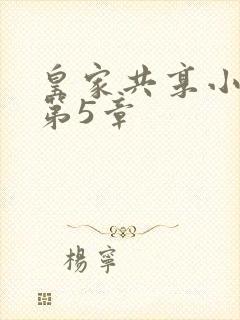 皇家共享小
第5章
楊寧